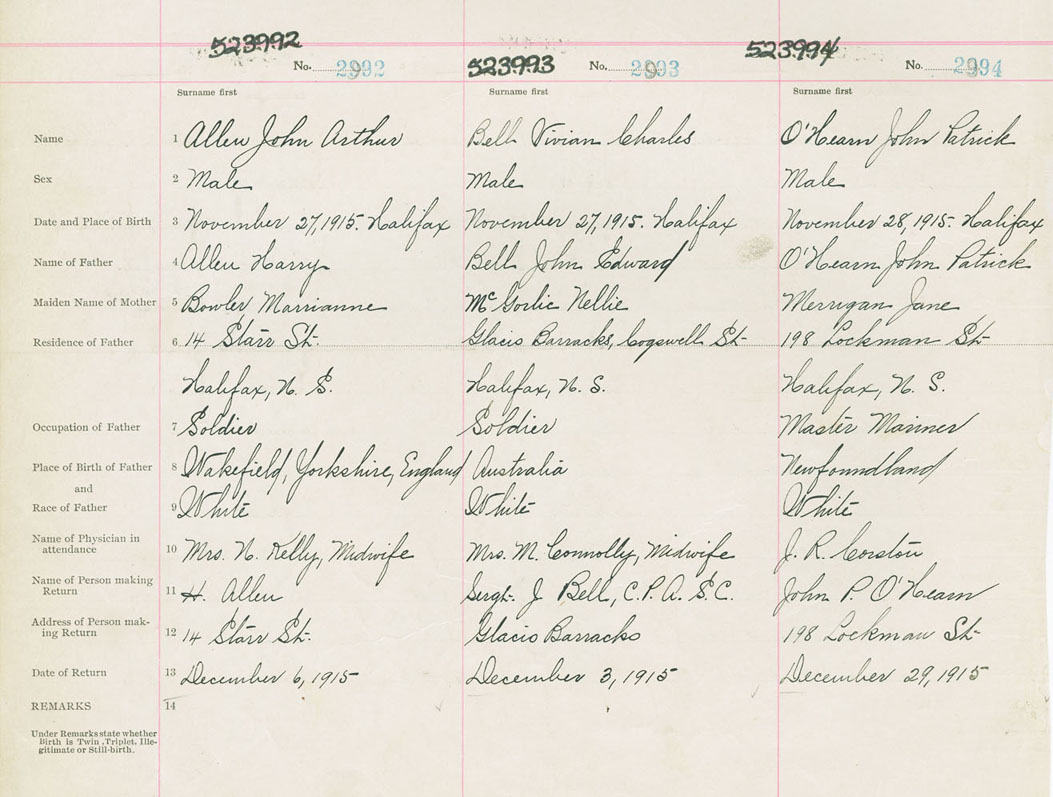 523992 523993 523994
No. 2992 No. 2993 No. 2994
Surname first Surname first Surname first
Name 1 Allen John Arthur Bell Vivian Charles O'Hearn John Patrick
Sex 2 Male Male Male
Date and Place of Birth 3 November 27, 1915. Halifax November 27, 1915. Halifax November 28, 1915. Halifax
Name of Father 4 Allen Harry Bell John Edward O'Hearn John Patrick
Maiden Name of Mother 5 Bowler Marrianne McGorlic Nellie Merrigan Jane
Residence of Father 6 14 Starr St. Glacis Barracks, Cogswell St. 198 Lockman St.
Halifax, N. S. Halifax, N. S. Halifax, N. S.
Occupation of Father 7 Soldier Soldier Master Mariner
Place of Birth of Father 8 Wakefield, Yorkshire, England Australia Newfoundland
and
Race of Father 9 White White White
Name of Physician in
attendance 10 Mrs. N. Kelly, Midwife Mrs. M. Connolly, Midwife J. R. Corston
Name of Person making
Return 11 H. Allen Sergt. J Bell, C.P.A.S.C. John P. O'Hearn
Address of Person mak-
ing Return 12 14 Starr St. Glacis Barracks 198 Lockman St.
Date of Return 13 December 6, 1915 December 3, 1915 December 29, 1915
REMARKS 14
Under Remarks state whether
Birth is Twin, Triplet, Ille-
gitimate or Still-birth.